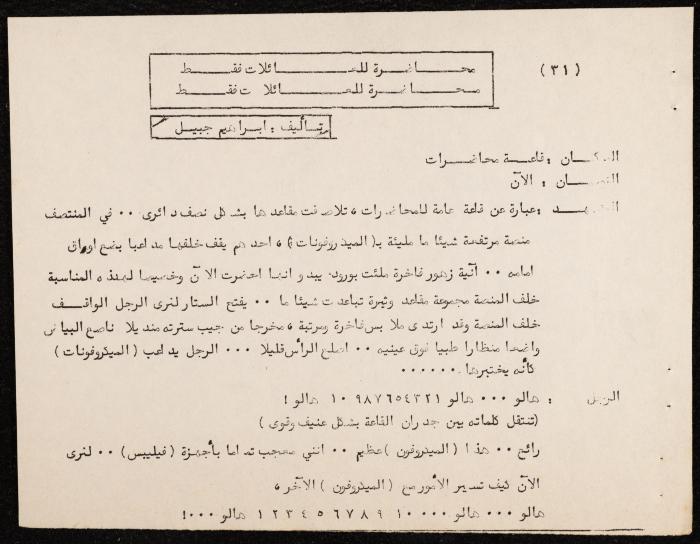 (٣١)
محاضرة للعائلات فقط
محاضرة للعائلات فقط
تأليف : ابراهيم جبيل
المكان : قاعة محاضرات
الزمان : الآن
المشهد : عبارة عن قاعة عامة للمحاضرات ، تلاصقت مقاعدها بشكل نصف دائرى ٠٠ في المنتصف
منصة مرتفعة شيئا ما مليئة بـ (الميكروفونات) ، احدهم يقف خلفها مداعبا بضع اوراق
امامه ٠٠ آنية زهور فاخرة ملئت بورود يبدو انها احضرت الآن وخصيصا لهذه المناسبة
خلف المنصة مجموعة مقاعد وثيرة تباعدت شيئا ما ٠٠ يفتح الستار لنرى الرجل الواقف
خلف المنصة وقد ارتدى ملابس فاخرة ومرتبة ، مخرجا من جيب سترته منديلا ناصع البياض
واضعا منظارا طبيا فوق عينيه ٠٠ اصلع الرأس قليلا ٠٠٠ الرجل يداعب (الميكروفونات)
كأنه يختبرها ٠٠٠٠٠٠
الرجل : هالو ٠٠٠ هالو ١٠ ٩٨٧٦٥٤٣٢١ هالو !
(تنتقل كلماته بين جدران القاعة بشكل عنيف وقوى)
رائع ٠٠ هذا (الميكروفون) عظيم ٠٠ انني معجب تماما بأجهزة (فيليبس) ٠٠ لنرى
الآن كيف تسير الأمور مع (الميكروفون) الآخر ،
هالو ٠٠٠ هالو ٠٠٠٠ ١٠ ٩ ٨ ٧ ٦ ٥ ٤ ٣ ٢ ١ هالو ٠٠٠!